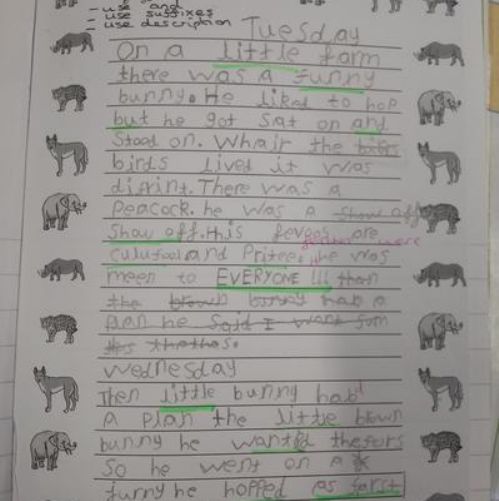 - use and
- use suffixes
- use description
Tuesday
On a little farm
there was a funny
bunny. He liked to hop
but he got sat on and
Stood on. Whair the
birds lived it was
diffrint. There was a
Peacock. he was a show off
Show off. this fevers are
culufool and Pritee. he was
meen to EVERYONE !!! than
the brown bunny hab a
plan he said I want sum
Wednesday
Then little bunny had
A plan the little brown
bunny he wanted
So he went on a
furny he hopped as farst